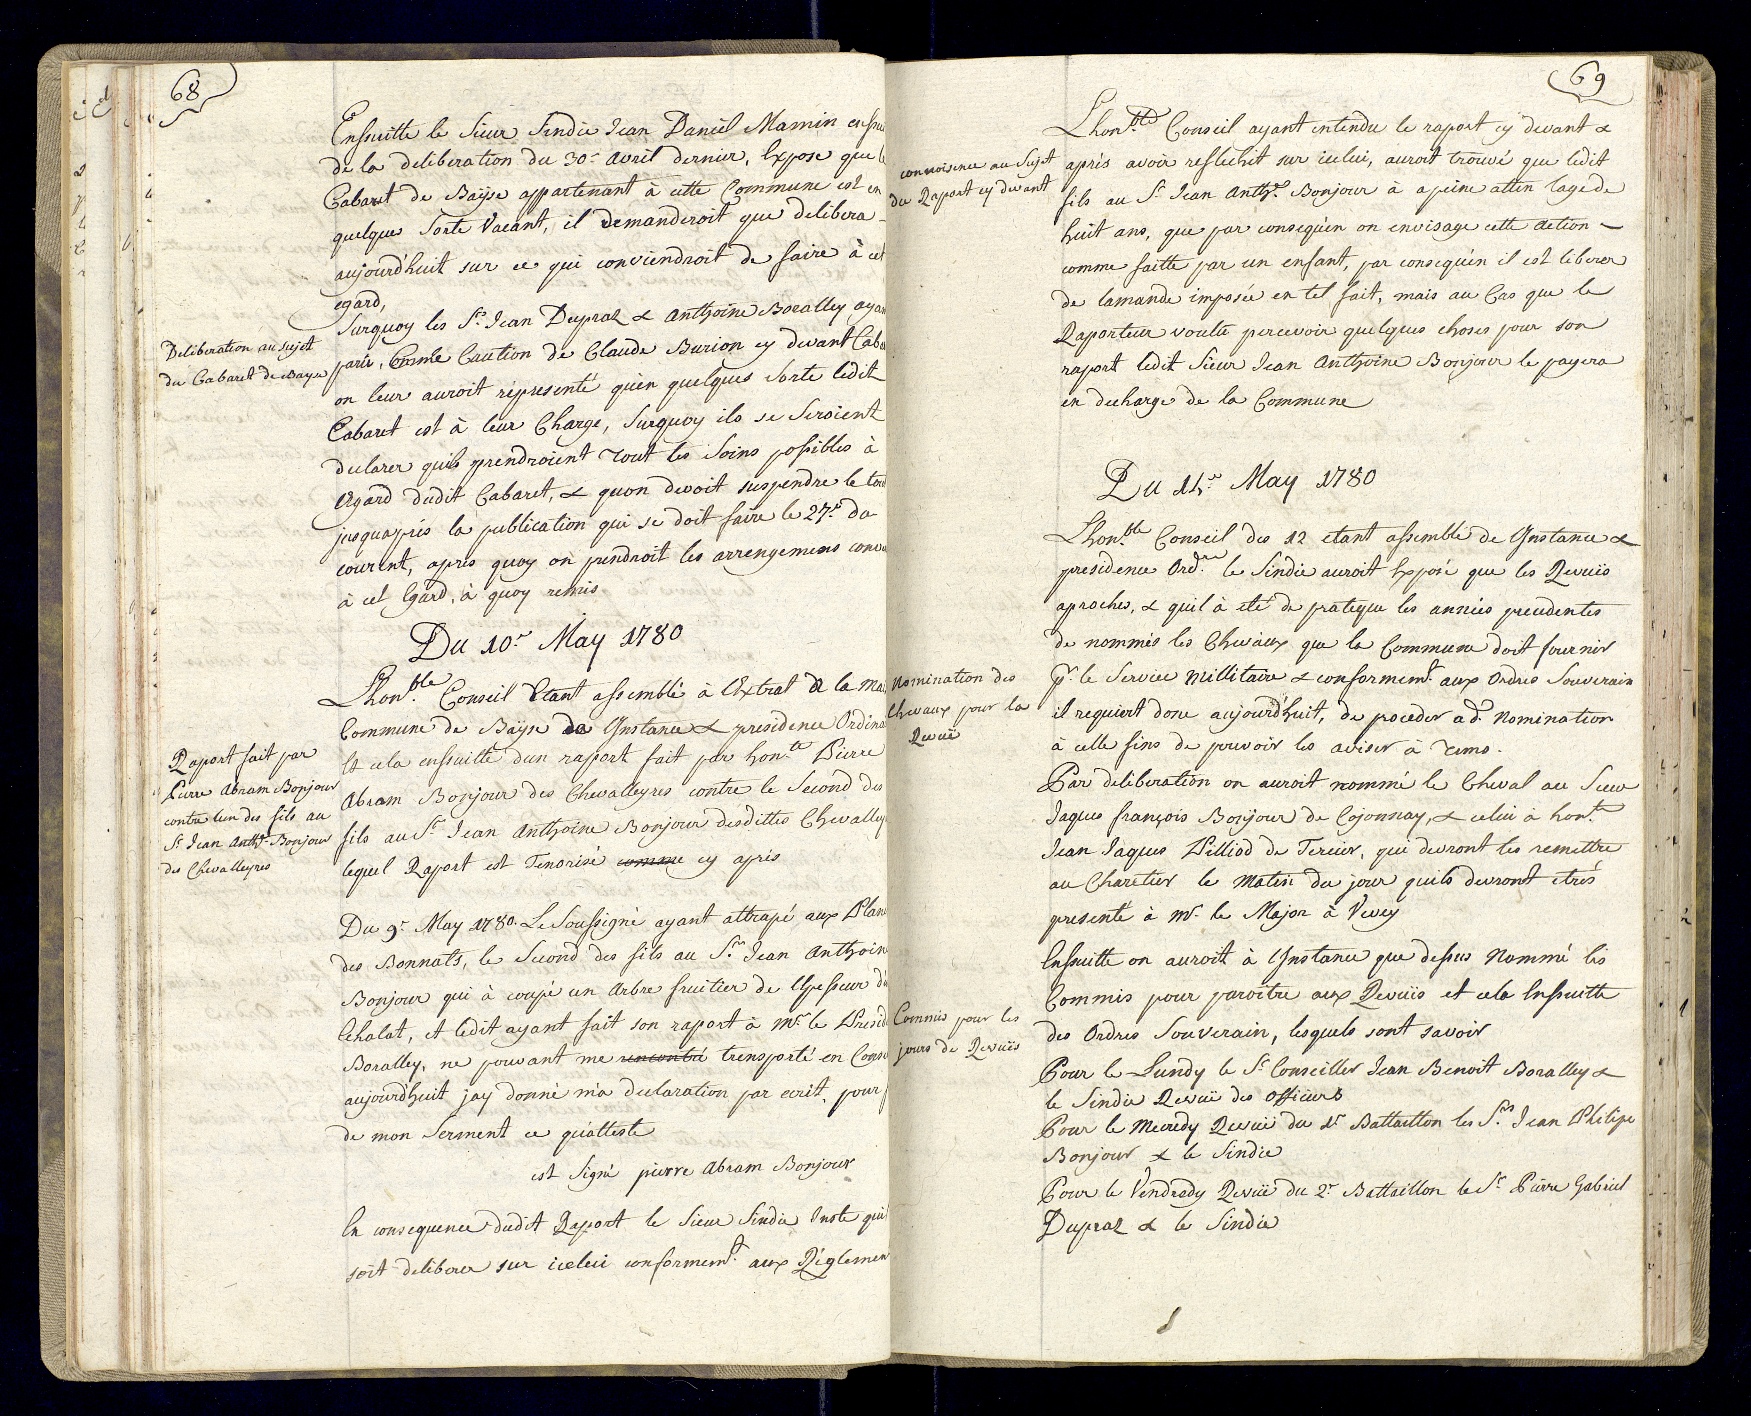 68
Ensuitte le Sieur Sindic Jean Daniel Mamin ensui
de la deliberation du 30.e avril dernier, Expose que le
Cabaret de Bayse appartenant à cette Commune est en
quelques Sorte Vacant, il demanderoit que delibera -
aujourd'huit sur ce qui conviendroit de faire à cet
egard,
Surquoy les S.rs Jean Dupraz & Anthoine Boralley ayan
Deliberation au sujet
du Cabaret de Bayse
parü, Comme Caution de Claude Burion cy devant Caba
on leur auroit répresenté qu'en quelques Sorte ledit
Cabaret est à leur Charge, Surquoy ils se Seroient
declarer quils prendroient tout les Soins possibles à
Egard dudit Cabaret, & quon devoit suspendre le tou
jusquaprés la publication qui se doit faire le 27.e du
courent, aprés quoy on prendroit les arrengemens conve
à cet Egard, à quoy remis
Du 10.e May 1780
Lhon.ble Conseil Etant assemblé à l'Extrat de la Mai
Commune de Bayse de Instance & presidence Ordina
Raport fait par
Pierre Abram Bonjour
contre lun des fils au
S.r Jean Anth.e Bonjour
des Chevalleyres
Et cela ensuitte dun raport fait par hon.te Pierre
Abram Bonjour des Chevalleyres contre le Second des
fils au S.r Jean Anthoine Bonjour desdittes Chevalley
lequel Raport est Tenorisé comme cy aprés
Du 9.e May 1780. Le Soussigné ayant attrapé, aux Plan
des Bonnats, le Second des fils au S.r Jean Anthoin
Bonjour qui à coupé un Arbre fruitier de l'Epesseur d'é
Chalat, et ledit ayant fait son raport à Mr. le Présid
Boralley, ne pouvant me rencontré trensporté en Conse
aujourd'huit jay donné ma declaration par ecrit, pour
de mon Serment ce qu'atteste
est Signé pierre Abram Bonjour
En consequence dudit Raport le Sieur Sindic Inste qui
soit deliberer sur icelui conformem.t aux Réglemen
69
Lhon.ble Conseil ayant entendu le raport cy devant &
connoisence au Sujet
du Raport cy devant
aprés avoir reflechit sur icelui, auroit trouvé que ledit
fils au S.r Jean Anth.e Bonjour à apeine attin lage de
huit ans, que par conseqüen on envisage cette action —
comme faitte par un enfant, par conseqüen il est liberer
de lamande imposée en tel fait, mais au Cas que le
Raporteur voulu percevoir quelques choses pour son
raport ledit Sieur Jean Anthoine Bonjour le payera
en decharge de la Commune
Du 14.e May 1780
Lhon.ble Conseil des 12 etant assemblé de Instance &
presidence Ord.re le Sindic auroit Exposé que les Revües
aproches, & quil à eté de pratique les années precedentes
de nommés les Chevaux que la Commune doit fournir
Nomination des
Chevaux pour la
Revüe
p.r le Service Millitaire & conformem.t aux Ordres Souverain
il requiert donc aujourd'huit, de proceder a d. Nomination
à celle fins de pouvoir les aviser à tems.
Par deliberation on auroit nommé le Cheval au Sieur
Jaques françois Bonjour de Cojonnay, & celui à hon.te
Jean Jaques Pilliod de Tercier, qui devront les remettre
au Charetier le Matin du jour quils devront etrés
presenté à Mr. le Major à Vevey
Ensuitte on auroit à Instance que dessus Nommé les
Commis pour les
jours de Revües
Commis pour paroitre aux Revües et cela Ensuitte
des Ordres Souverain, lesquels sont savoir
Pour le Lundy le S.r Conseiller Jean Benoit Boralley &
le Sindic Revüe des Officiers
Pour le Mecredy Revüe du 1.r Battaillon les S.rs Jean Philipe
Bonjour & le Sindic
Pour le Vendredy Revüe du 2.e Battaillon le S.r Pierre Gabriel
Dupraz & le Sindic